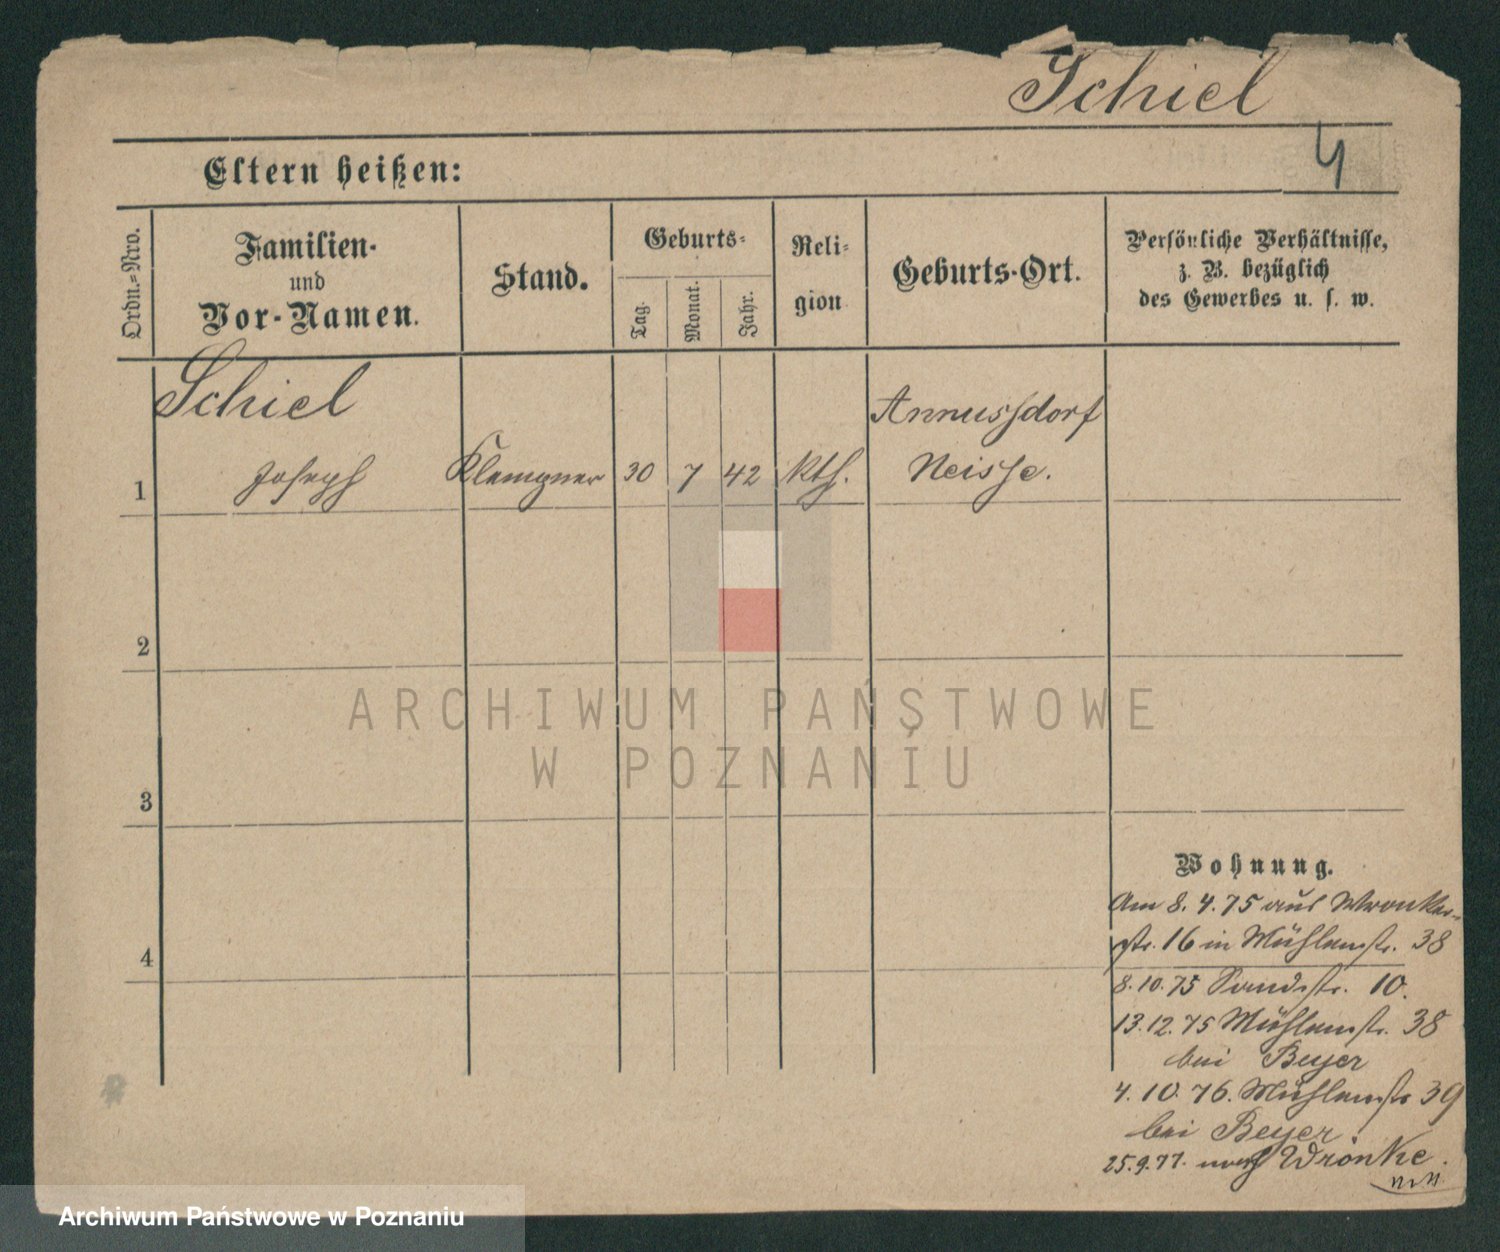 Schiel
4
Eltern heißen:
Ordn.=Nro.
Familien-
und
Vor-Namen.
Stand.
Geburts=
Tag.
Monat.
Jahr.
Reli=
gion
Geburts-Ort.
Persönliche Verhältnisse,
z. B. bezüglich
des Gewerbes u. s. w.
Schiel
Annussdorf
1 Joseph Klempner 30 7 42 kth. Neisse.
2
ARCHIWUM PAŃSTWOWE
W POZNANIU
3
Wohnung.
Am 8. 4. 75 aus Wronker-
str. 16 in Mühlenstr. 38
4
8. 10. 75 Sandstr. 10.
13. 12. 75 Mühlenstr. 38
bei Beyer
4. 10. 76. Mühlenstr 39
bei Beyer
25. 9. 77. nach Wronke.
Archiwum Państwowe w Poznaniu